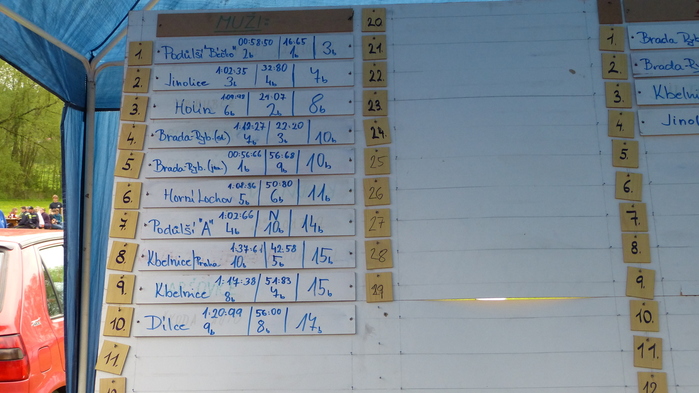 MUŽI:
1. Podůlší "Béčko" 00:58:50 2b 16:65 1b 3b
2. Jinolice 1:02:35 3b 32:80 4b 7b
3. Holín 6b 21:07 2b 8b
4. Brada-Ryb. 1:12:27 7b 22:20 3b 10b
5. Brada-Ryb. 00:56:66 1b 56:68 9b 10b
6. Horní Lochov 5b 50:80 6b 11b
7. Podůlší "A" 1:02:66 4b N 10b 14b
8 Kbelnice/Praha 1:37:61 10b 42:58 5b 15b
9. Kbelnice 1:17:38 8b 51:83 7b 15b
10. Dílce 1:20:99 9b 56:00 8b 17b
11.
20
21
22
23
24
25
26
27
28
29
1. Brada Ryb
2. Brada-Ryb
3. Kbelni
4. Jino
5.
6.
7.
8.
9.
10.
11.
12